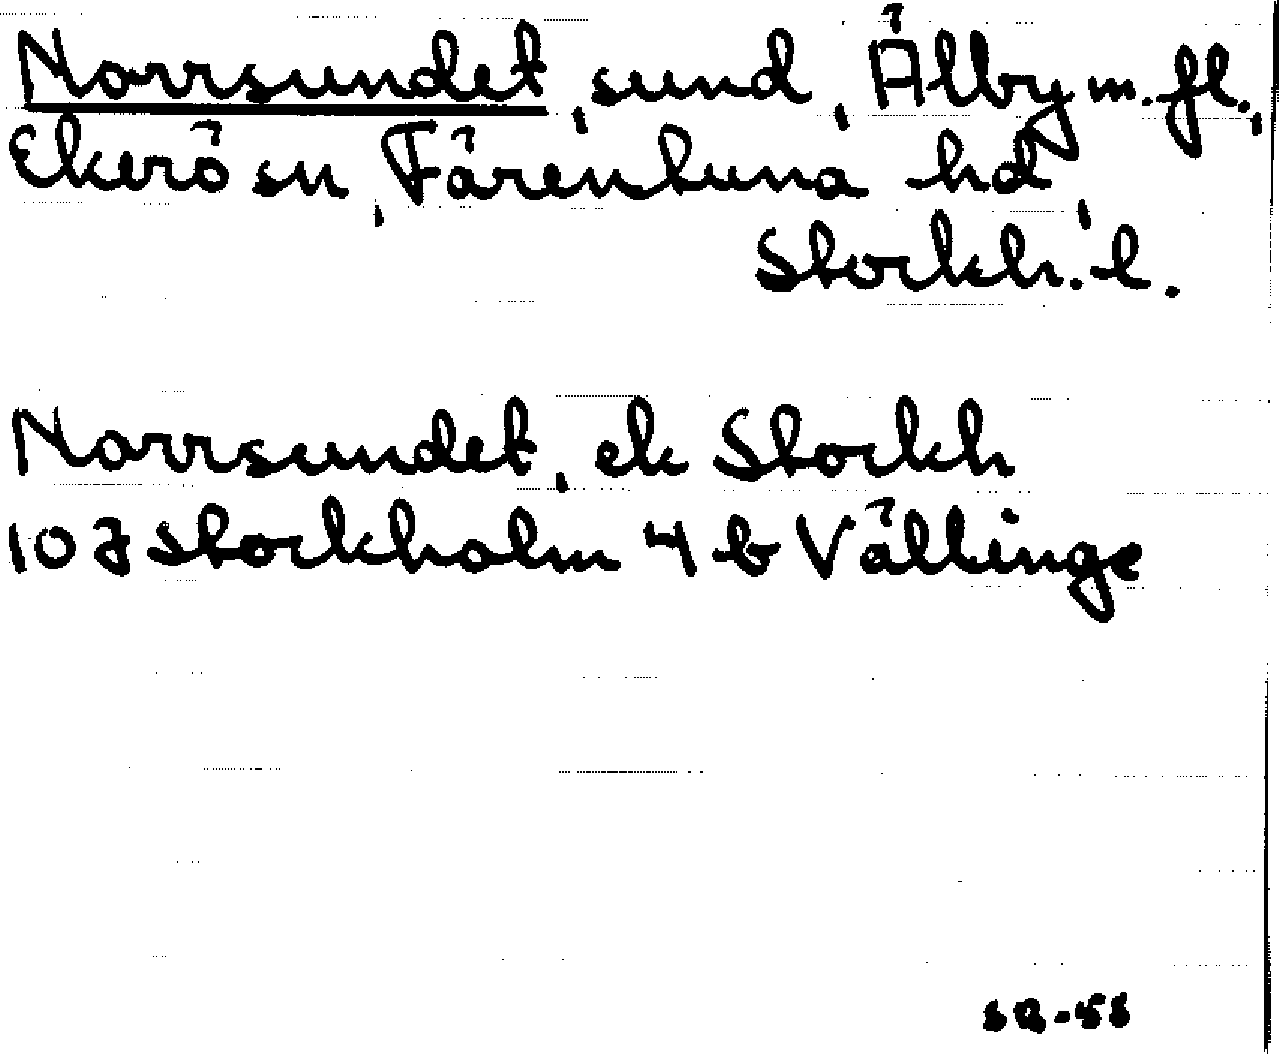 Norrsundet, sund, Älby m.fl.,
Ekerö sn, Färentuna hd,
Stockh. l.
Norrsundet, ek Stockh
10 J Stockholm 4 b Vällinge